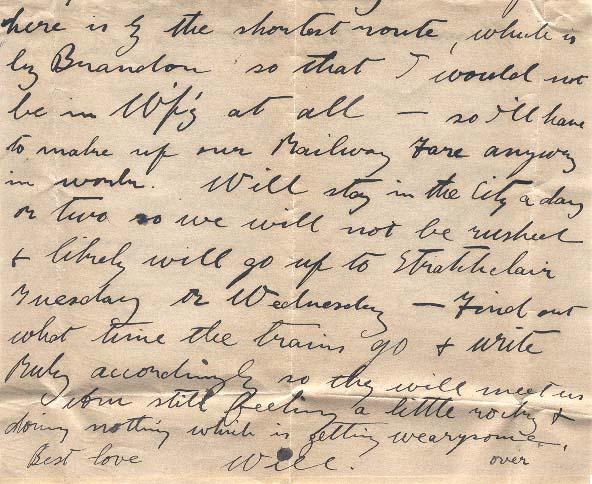 here is by the shortest route, which is
by Brandon so that I would not
be in Wp'g at all — so I'll have
to make up our Railway Fare anyway
in work. Will stay in the City a day
or two so we will not be rushed
& likely will go up to Strathclair
Tuesday or Wednesday — Find out
what time the trains go & write
Ruby accordingly so they will meet us
Am still feeling a little rocky &
doing nothing which is getting wearysome.
Best love Will. over